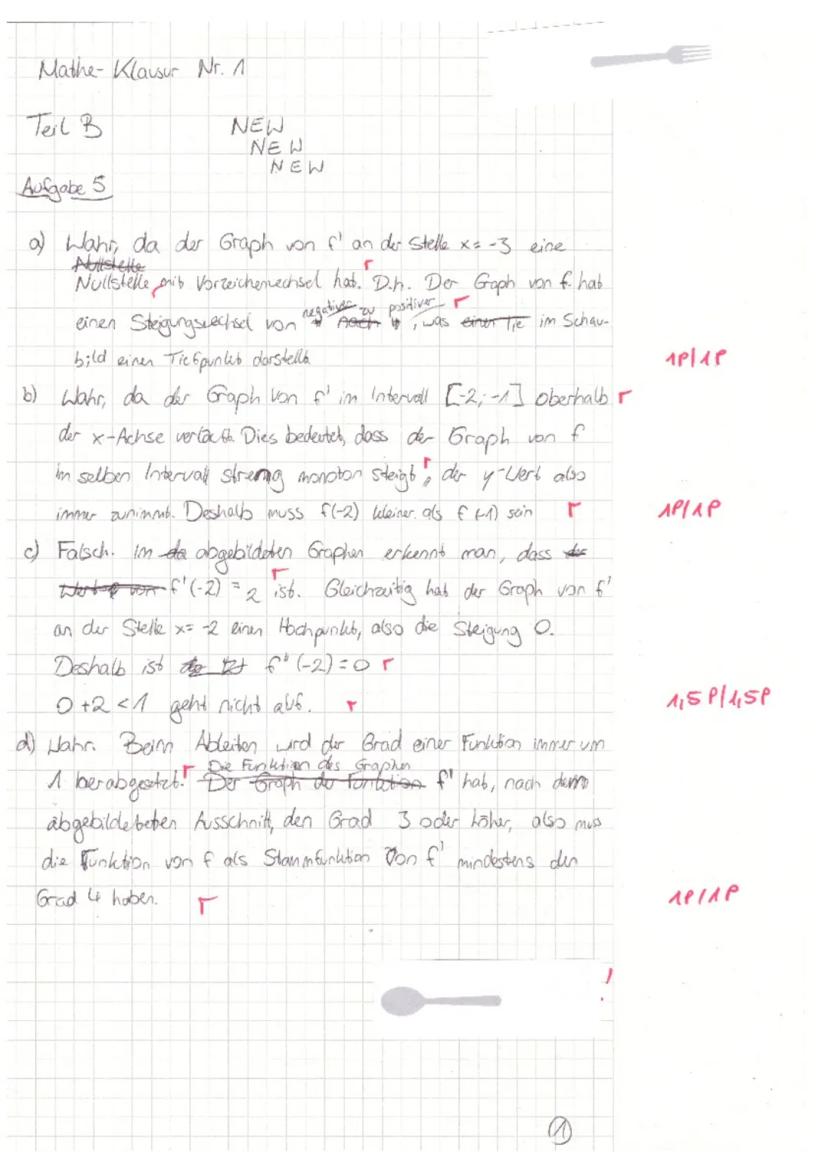 Mathe-Klausur Nr. 1
Teil B
NEW
NEW
NEW
Aufgabe 5
a) Wahr, da der Graph von f' an der Stelle x = -3 eine
Nullstelle
Nullstelle, mit Vorzeichenwechsel hat. D.h. Der Graph von f hat
negativer zu positiver
einen Steigungswechsel von nach, was einen Tie im Schau-
bild einen Tiefpunkt darstellt.
1P/1P
b) Wahr, da der Graph von f' im Intervall [-2;-1] oberhalb
der x-Achse verläuft. Dies bedeutet, dass der Graph von f
im selben Intervall streng monoton steigt, der y-Wert also
immer zunimmt. Deshalb muss f(-2) kleiner als f(-1) sein
1P/1P
c) Falsch. Im abgebildeten Graphen erkennt man, dass
f'(-2) = 2 ist. Gleichzeitig hat der Graph von f'
an der Stelle x= -2 einen Hochpunkt, also die Steigung 0.
Deshalb ist f''(-2) = 0
0+2 < 1 geht nicht auf.
1,5P/1,5P
d) Wahr. Beim Ableiten wird der Grad einer Funktion immer um
Die Funktion des Graphen
1 herabgesetzt. Der Graph der Funktion f' hat, nach dem
abgebildeteten Ausschnitt, den Grad 3 oder höher, also muss
die Funktion von f als Stammfunktion von f' mindestens den
Grad 4 haben.
1P/1P
!
1